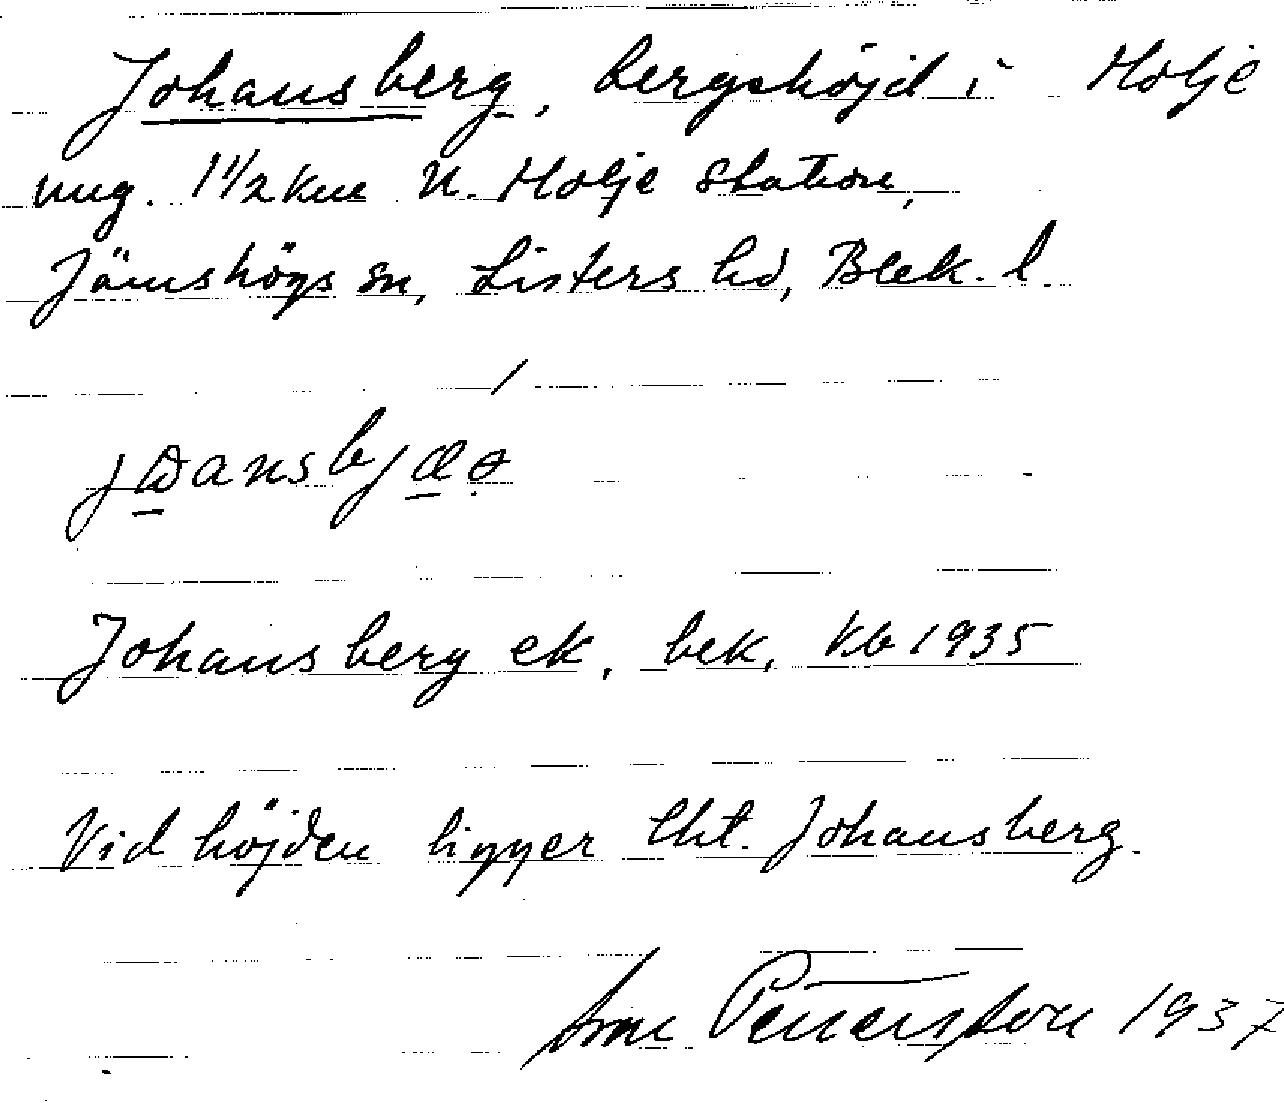 Johansberg, bergshöjd i Holje
ung. 1 1/2 km N. Holje station,
Jämshögs sn, Listers hd, Blek. l.
Johansberg ek. bek. kb 1935
Vid höjden ligger lht. Johansberg.
Petterson 1937